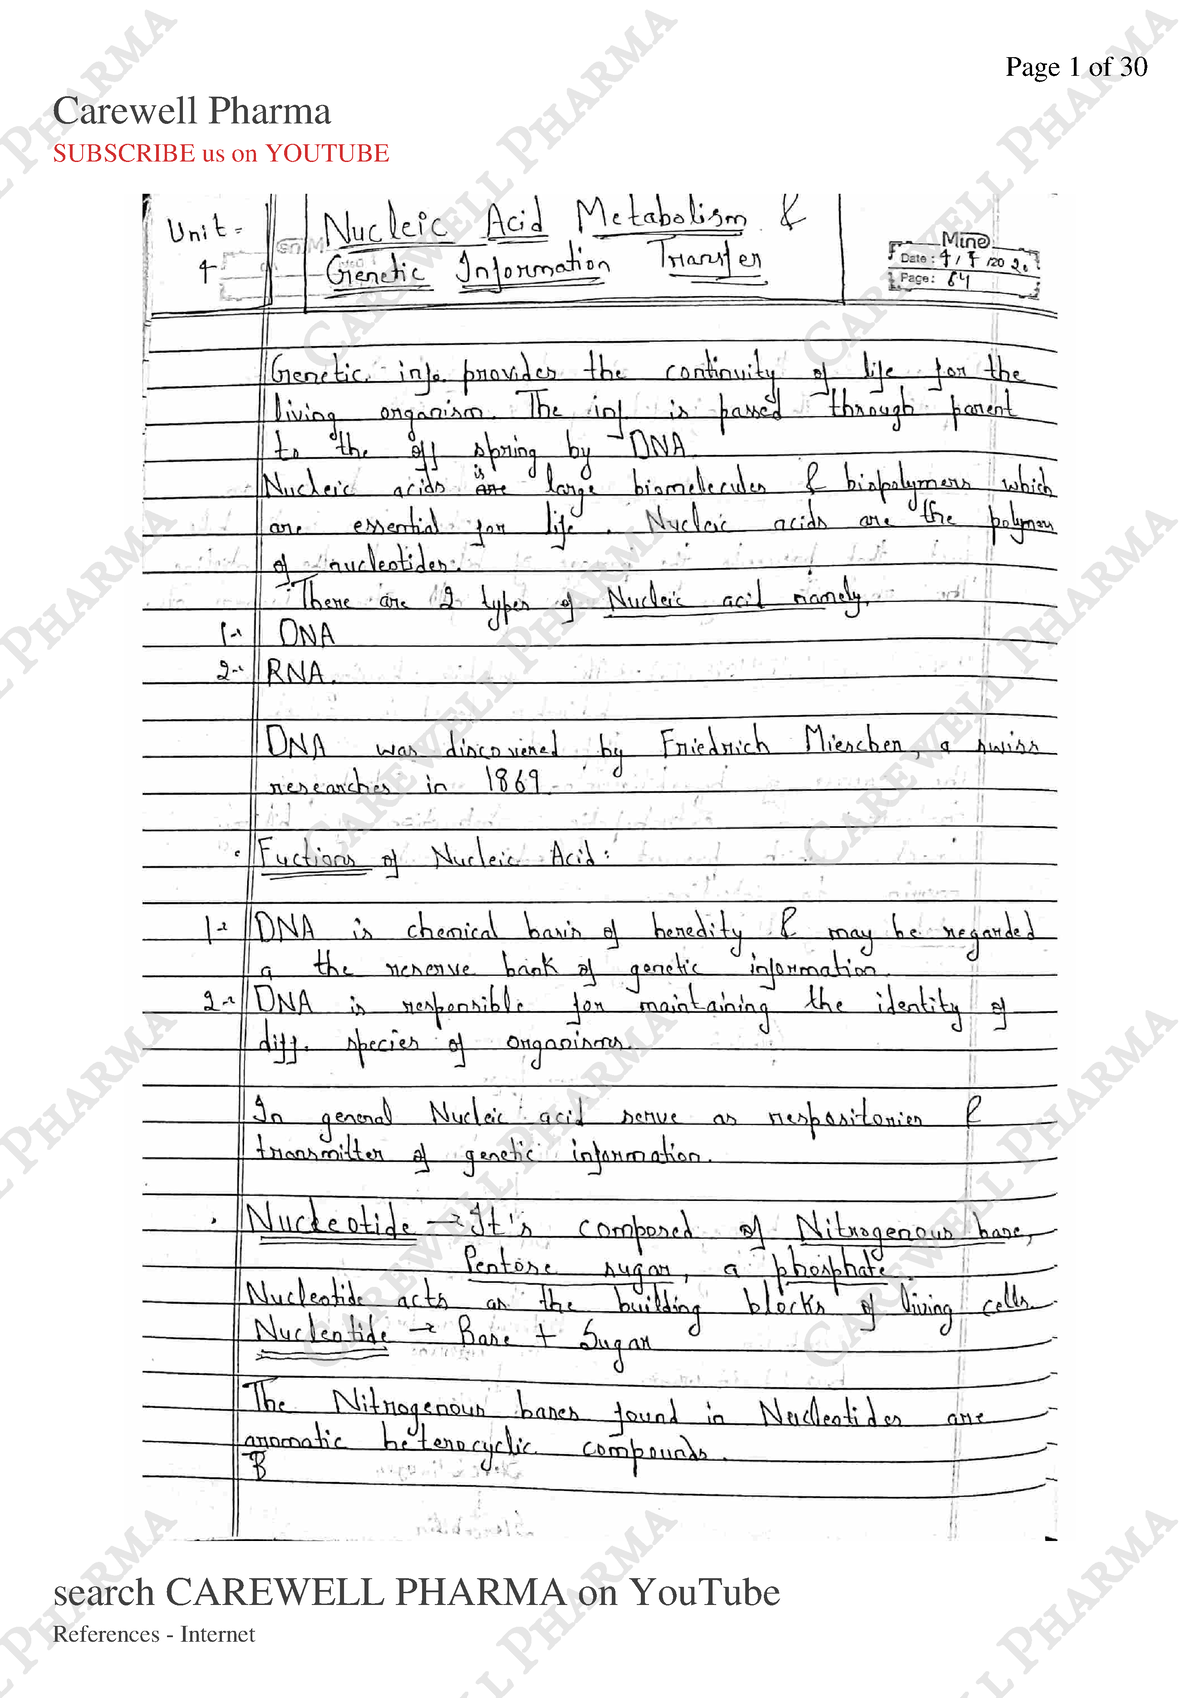 Page 1 of 30
Carewell Pharma
SUBSCRIBE us on YOUTUBE
Unit - 4
Nucleic Acid Metabolism &
Genetic Information Transfer
Mine
Date : 4 / 7 /20 20
Page: 64
Genetic info. provides the continuity of life for the
living organism. The inf is passed through parent
to the off spring by DNA
Nucleic acids is large biomelecules & biopolymers which
are essential for life. Nucleic acids are the polymers
of nucleotides.
There are 2 types of Nucleic acid namely,
1- DNA
2- RNA.
DNA was discovered by Friedrich Miescher, a swiss
researcher in 1869.
Fuctions of Nucleic Acid:
1- DNA is chemical basis of heredity & may be regarded
a the reserve bank of genetic information.
2- DNA is responsible for maintaining the identity of
diff. species of organisms.
In general Nucleic acid serve as respositories &
transmitter of genetic information.
Nucleotide → It's composed of Nitrogenous base,
Pentose sugar, a phosphate.
Nucleotide acts as the building blocks of living cells.
Nucleotide → Base + Sugar
The Nitrogenous bases found in Nucleotides are
aromatic heterocyclic compounds.
B
search CAREWELL PHARMA on YouTube
References - Internet
CAREWELL PHARMA